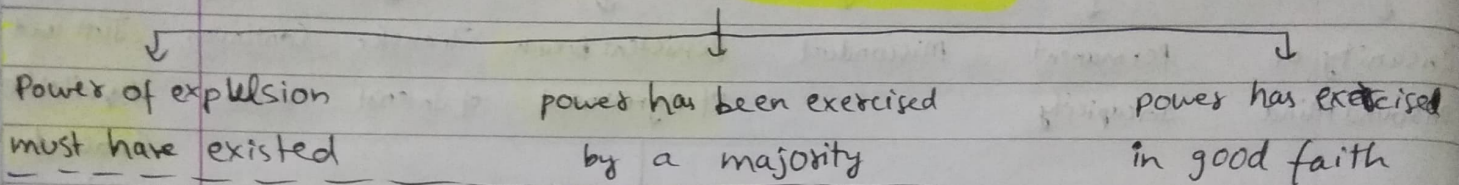 Power of expulsion
must have existed
power has been exercised
by a majority
power has exercised
in good faith